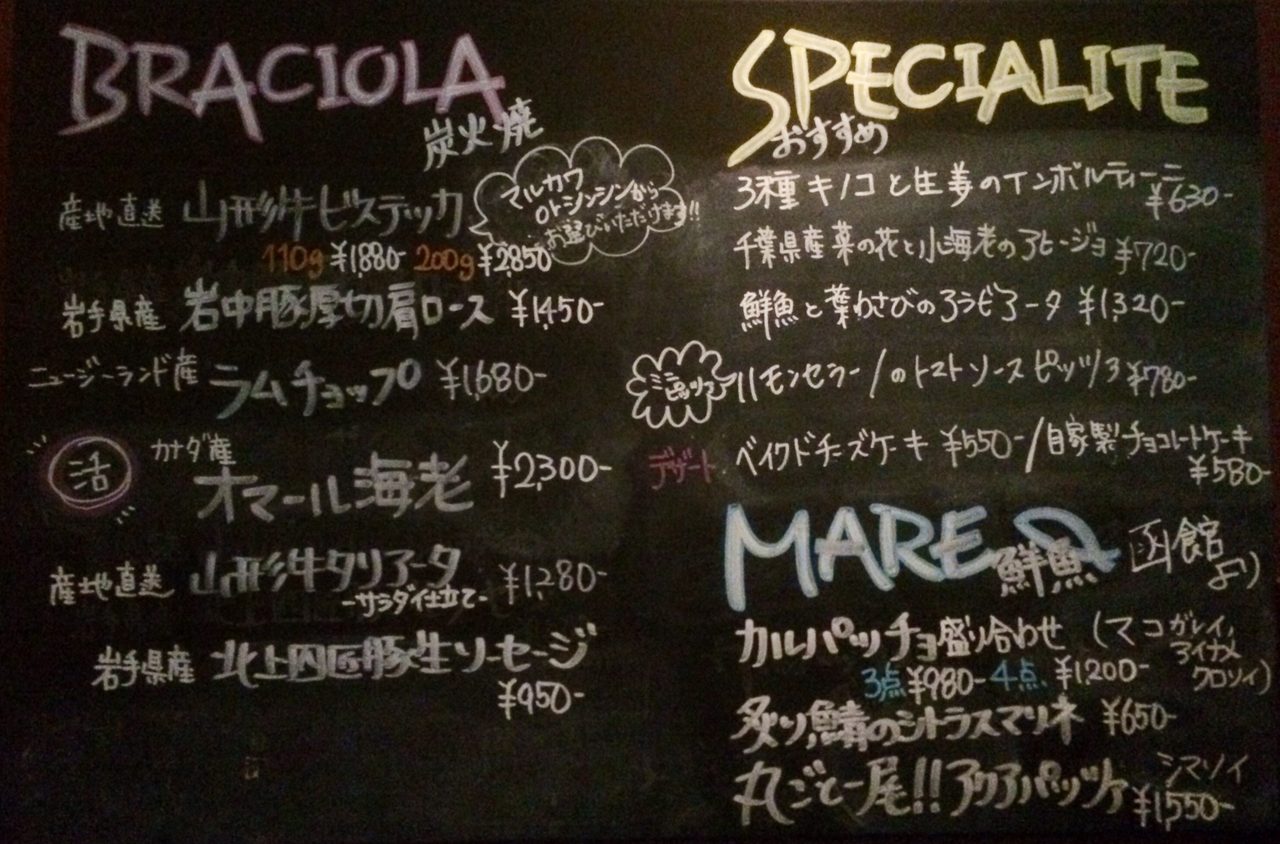 BRACIOLA
炭火焼
産地直送 山形牛ビステッカ
マルカワ
orシンシンから
お選びいただけます!!
110g ¥1,880- 200g ¥2850
岩手県産 岩中豚厚切肩ロース ¥1,450-
ニュージーランド産 ラムチョップ ¥1,680-
活 カナダ産
オマール海老 ¥2,300-
産地直送 山形牛タリアータ ¥1,280-
-サラダ仕立て-
岩手県産 北上四匹豚生ソーセージ
¥950-
SPECIALITE
おすすめ
3種キノコと生姜のインボルティーニ
¥630-
千葉県産菜の花と小海老のアヒージョ ¥720-
鮮魚と葉わさびのアラビアータ ¥1,320-
ミニ
ピッツァ
リモンセラーノのトマトソースピッツァ ¥780-
デザート ベイクドチーズケーキ ¥550-/自家製チョコレートケーキ
¥580-
MARE
鮮魚 函館
より
カルパッチョ盛り合わせ (マコガレイ,
アイナメ
クロソイ)
3点 ¥980- 4点 ¥1,200-
炙り鯖のシトラスマリネ ¥650-
丸ごと一尾!!アクアパッツァ シマソイ
¥1,550-